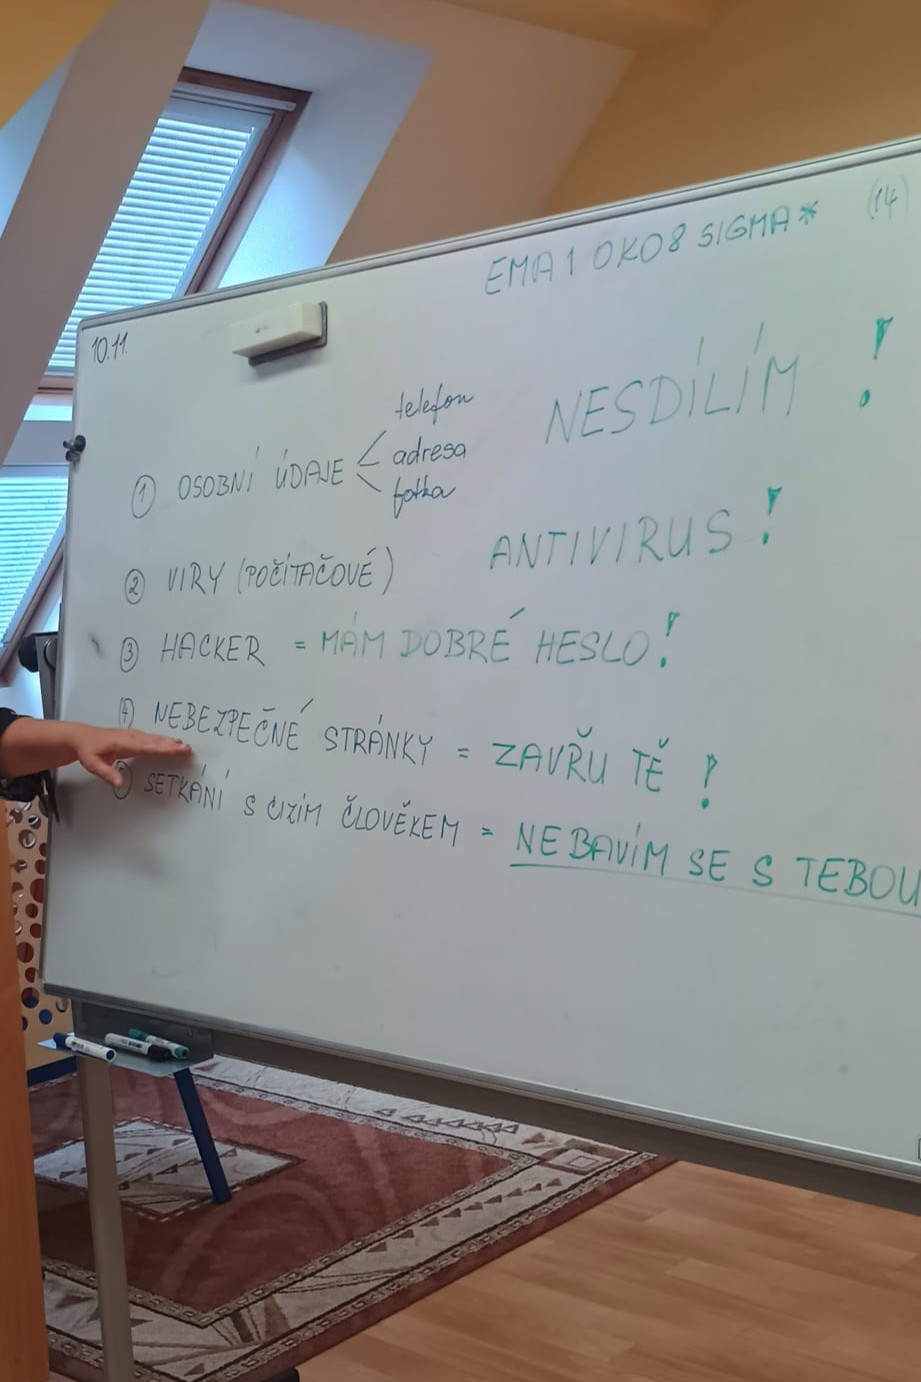 EMA1OKO8SIGMA* (14)
10.11.
NESDÍLÍM!
telefon
① OSOBNÍ ÚDAJE < adresa
fotka
② VIRY (POČÍTAČOVÉ) ANTIVIRUS!
③ HACKER = MÁM DOBRÉ HESLO!
④ NEBEZPEČNÉ STRÁNKY = ZAVŘU TĚ!
⑤ SETKÁNÍ S CIZÍM ČLOVĚKEM = NEBAVÍM SE S TEBOU